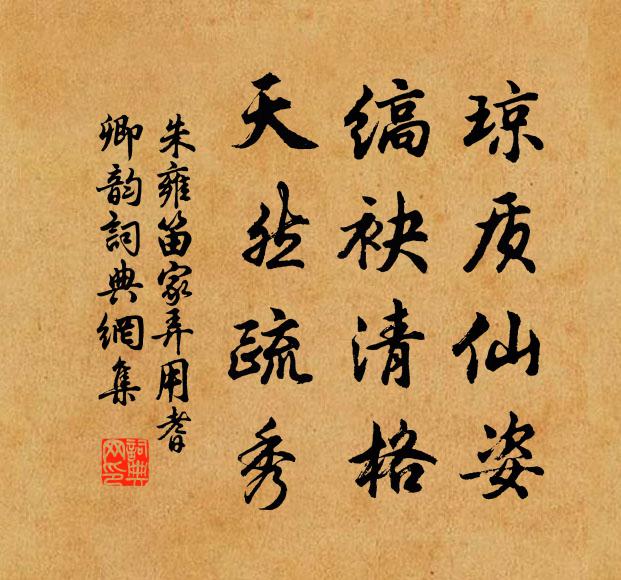 琼质仙姿
缟袂清格
天然疏秀
朱雍笛家弄用耆
卿韵詞典網集
詞典
网印